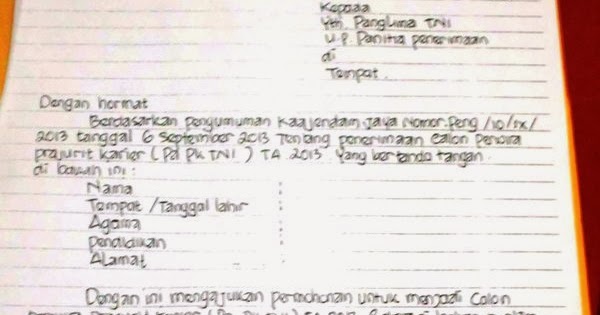 Kepada
Yth. Panglima TNI
u.p. Panitia penerimaan
di
Tempat.
Dengan hormat
Berdasarkan pengumuman Kaajendam Jaya Nomor.Peng /10/IX/
2013 tanggal 6 September 2013 Tentang penerimaan Calon Perwira
prajurit Karier ( Pa PK TNI ) TA 2013 Yang bertanda tangan.
di bawah ini :
Nama :
Tempat /Tanggal lahir :
Agama :
Pendidikan :
Alamat :
Dengan ini mengajukan permohonan untuk menjadi Calon